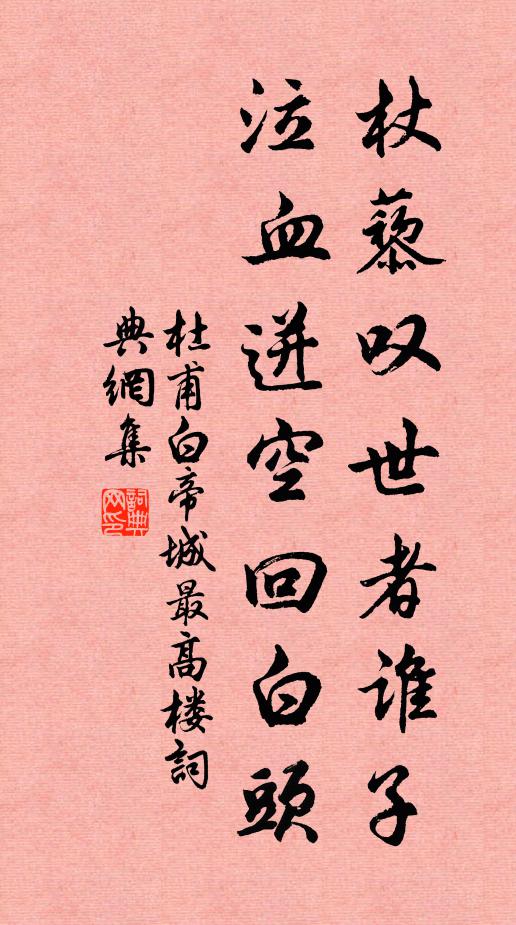 杖藜叹世者谁子
泣血迸空回白頭
杜甫白帝城最高楼詞
典網集
詞典网印